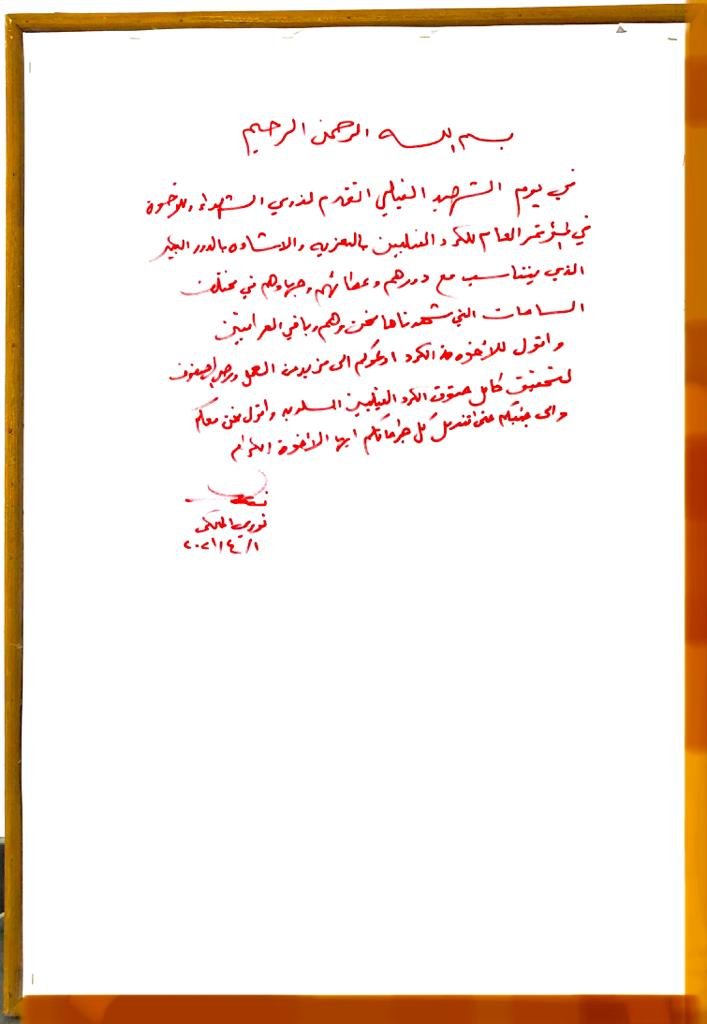 بسم الله الرحمن الرحيم
في يوم الشهيد الفيلي اتقدم لذوي الشهداء وللاخوة
في المؤتمر العام للكرد الفيليين بالتعزية والاشادة بالدور الكبير
الذي يتناسب مع دورهم وعطائهم وجهادهم في مختلف
الساحات التي شهدناها نحن وهم وباقي العراقيين
واقول للأخوة الكرد ادعوكم الى مزيد من العمل ورص الصفوف
لتحقيق كامل حقوق الكرد الفيليين المسلوبة واقول نحن معكم
والى جنبكم حتى كل ايها الاخوة الكرام
نوري المالكي
٢٠٢١/٤/١